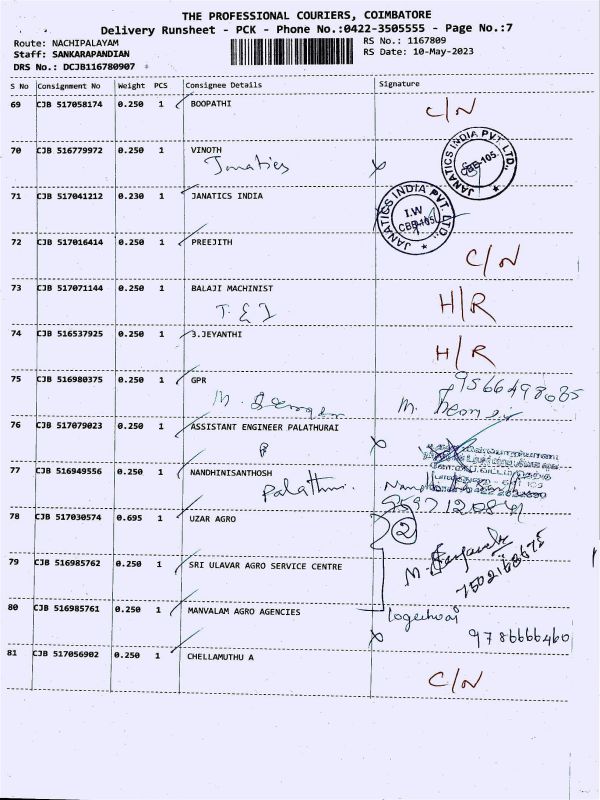 THE PROFESSIONAL COURIERS, COIMBATORE
Delivery Runsheet - PCK - Phone No.:0422-3505555 - Page No.:7
Route: NACHIPALAYAM
RS No.: 1167809
Staff: SANKARAPANDIAN
RS Date: 10-May-2023
DRS No.: DCJB116780907
S No Consignment No Weight PCS Consignee Details Signature
69 CJB 517058174 0.250 1 BOOPATHI C/N
70 CJB 516779972 0.250 1 VINOTH
Janatics
JANATICS INDIA PVT. LTD.,
CBB-105.
71 CJB 517041212 0.230 1 JANATICS INDIA
JANATICS INDIA PVT. LTD.,
I.W
CBB-105.
72 CJB 517016414 0.250 1 PREEJITH C/N
73 CJB 517071144 0.250 1 BALAJI MACHINIST H/R
74 CJB 516537925 0.250 1 3.JEYANTHI H/R
75 CJB 516980375 0.250 1 GPR
9566498685
76 CJB 517079023 0.250 1 ASSISTANT ENGINEER PALATHURAI
77 CJB 516949556 0.250 1 NANDHINISANTHOSH
78 CJB 517030574 0.695 1 UZAR AGRO
2
79 CJB 516985762 0.250 1 SRI ULAVAR AGRO SERVICE CENTRE
7502168675
80 CJB 516985761 0.250 1 MANVALAM AGRO AGENCIES
9786666460
81 CJB 517056902 0.250 1 CHELLAMUTHU A C/N